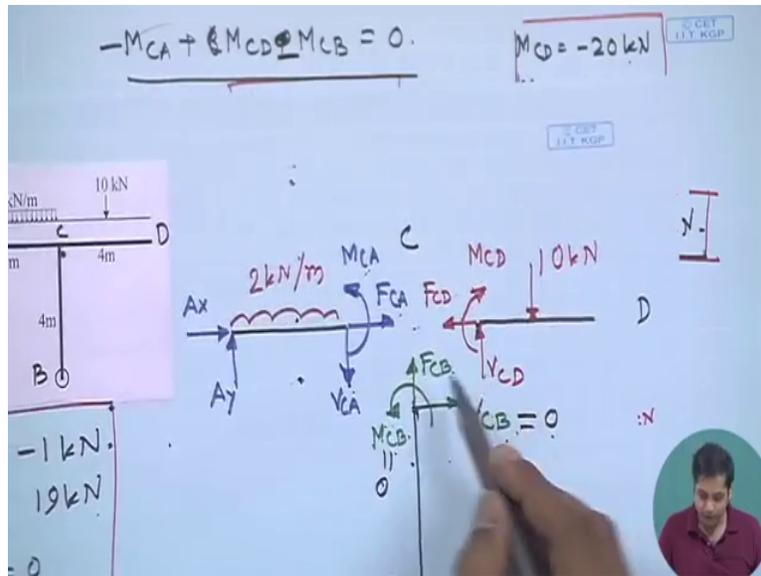 -MCA + MCD MCB = 0.
MCD = -20kN
© CET
I.I.T. KGP
© CET
I.I.T. KGP
kN/m
10 kN
C
D
m
4m
4m
B
-1 kN.
19kN
= 0
2kN/m
MCA
C
Ax
FCA
Ay
VCA
FCD
MCD
10kN
D
VCD
FCB
MCB
=
0
CB = 0
N.
:N